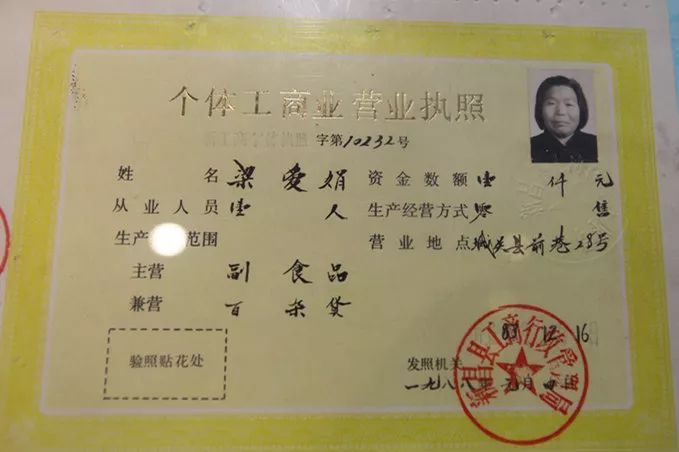 个体工商业营业执照
字第10232号
姓名 梁爱娟 资金数额 壹仟元
从业人员 壹人 生产经营方式 零售
生产 范围 营业地点 城关县前巷28号
主营 副食品
兼营 百杂货
83 12 16
验照贴花处 发照机关
一九八八年元月四日
新昌县工商行政管理局